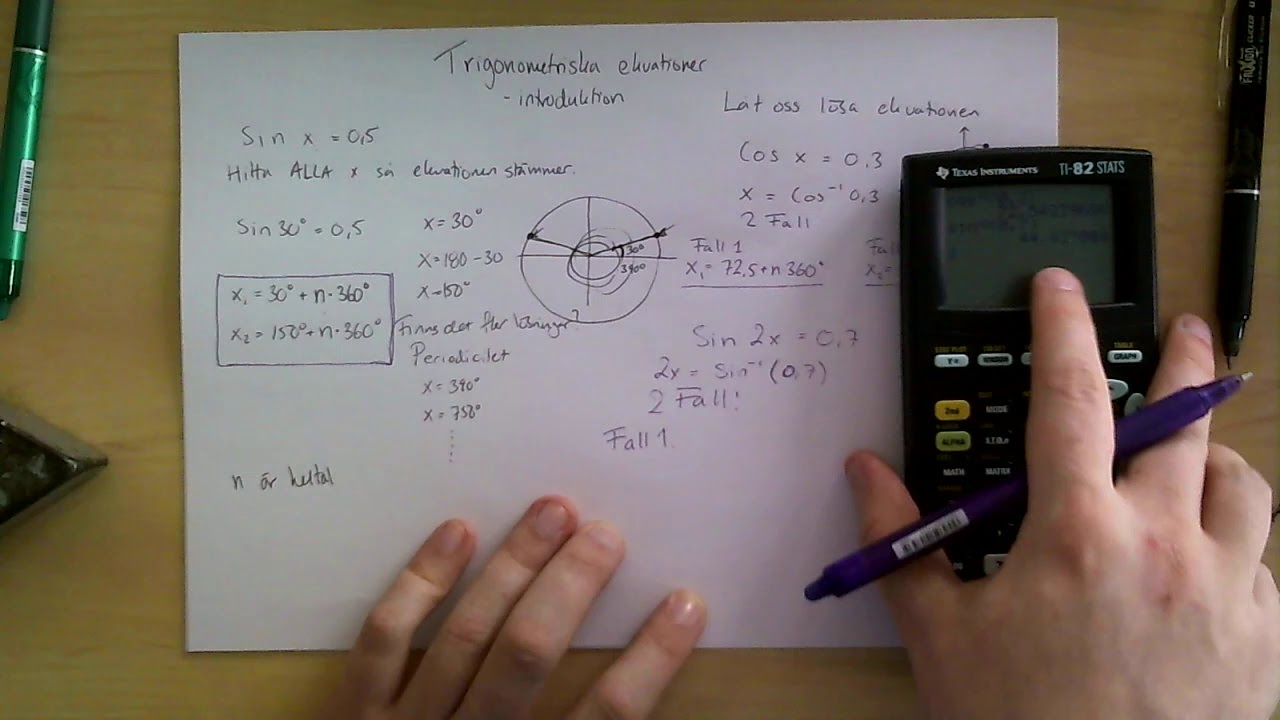 Trigonometriska ekvationer
- introduktion
Sin x = 0,5
Hitta ALLA x så ekvationen stämmer.
Sin 30° = 0,5
x = 30°
x = 180 - 30
x = 150°
x₁ = 30° + n · 360°
x₂ = 150° + n · 360°
Finns det fler lösningar?
Periodicitet
x = 390°
x = 750°
n är heltal
30°
390°
Låt oss lösa ekvationen
Cos x = 0,3
x = Cos⁻¹ 0,3
2 Fall
Fall 1
x₁ = 72,5 + n · 360°
x₂ =
Sin 2x = 0,7
2x = Sin⁻¹ (0,7)
2 Fall!
Fall 1.
TEXAS INSTRUMENTS TI-82 STATS
TABLE
Y= WINDOW GRAPH
2nd MODE
ALPHA X,T,θ,n
MATH MATRX
FRIXION CLICKER